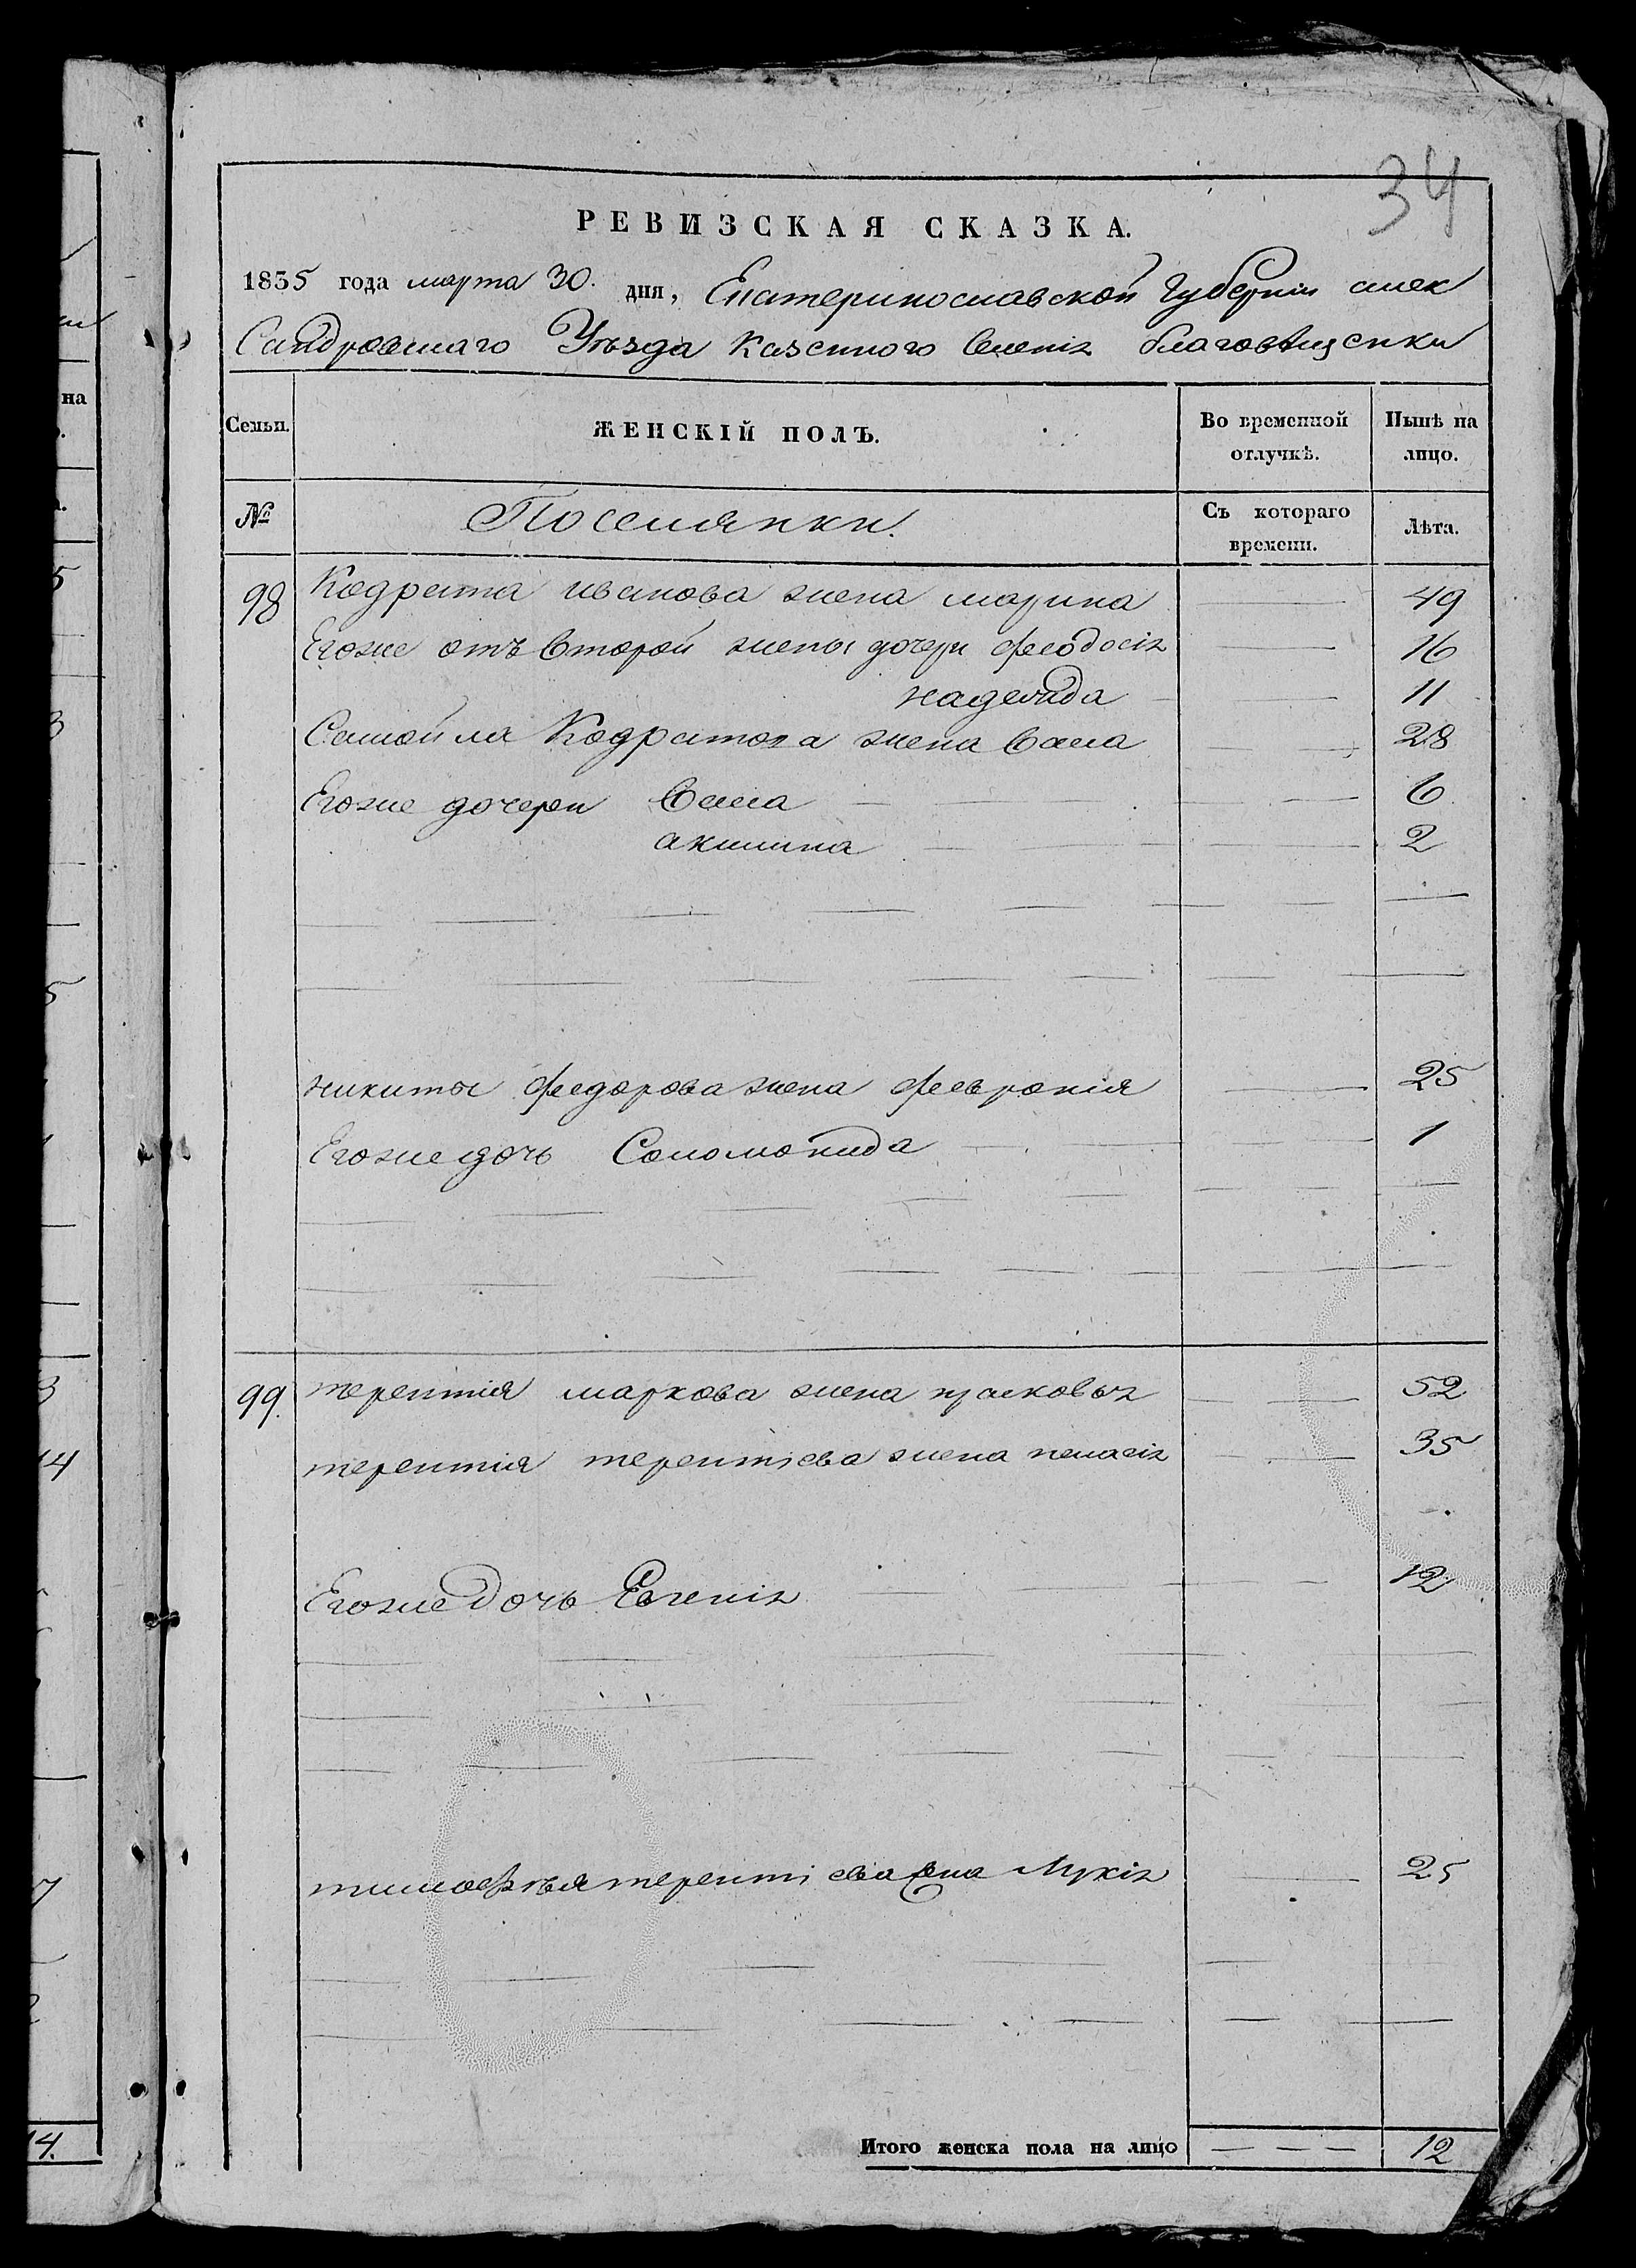 34
РЕВИЗСКАЯ СКАЗКА.
1835 года марта 30. дня, Екатеринославской Губерніи алек
Сандровскаго Уѣзда Казенного Селенія благовѣщенки
на
Семьи. ЖЕНСКІЙ ПОЛЪ. Во временной отлучкѣ. Нынѣ на лицо.
№ Поселянки. Съ котораго времени. Лѣта.
98 Кодрата иванова жена марина 49
Егоже отъ второй жены дочери феодосія 16
надежда 11
Самойла Кодратова жена васа 28
Егоже дочери Васа 6
акилина 2
никиты федорова жена февронія 25
Егоже дочь Соломонида 1
99. терентія маркова жена прасковья 52
терентія терентіева жена пелагія 35
Егоже дочь Евгенія 12
тимофѣя терентіева жена Лукія 25
Итого женска пола на лицо 12
14.